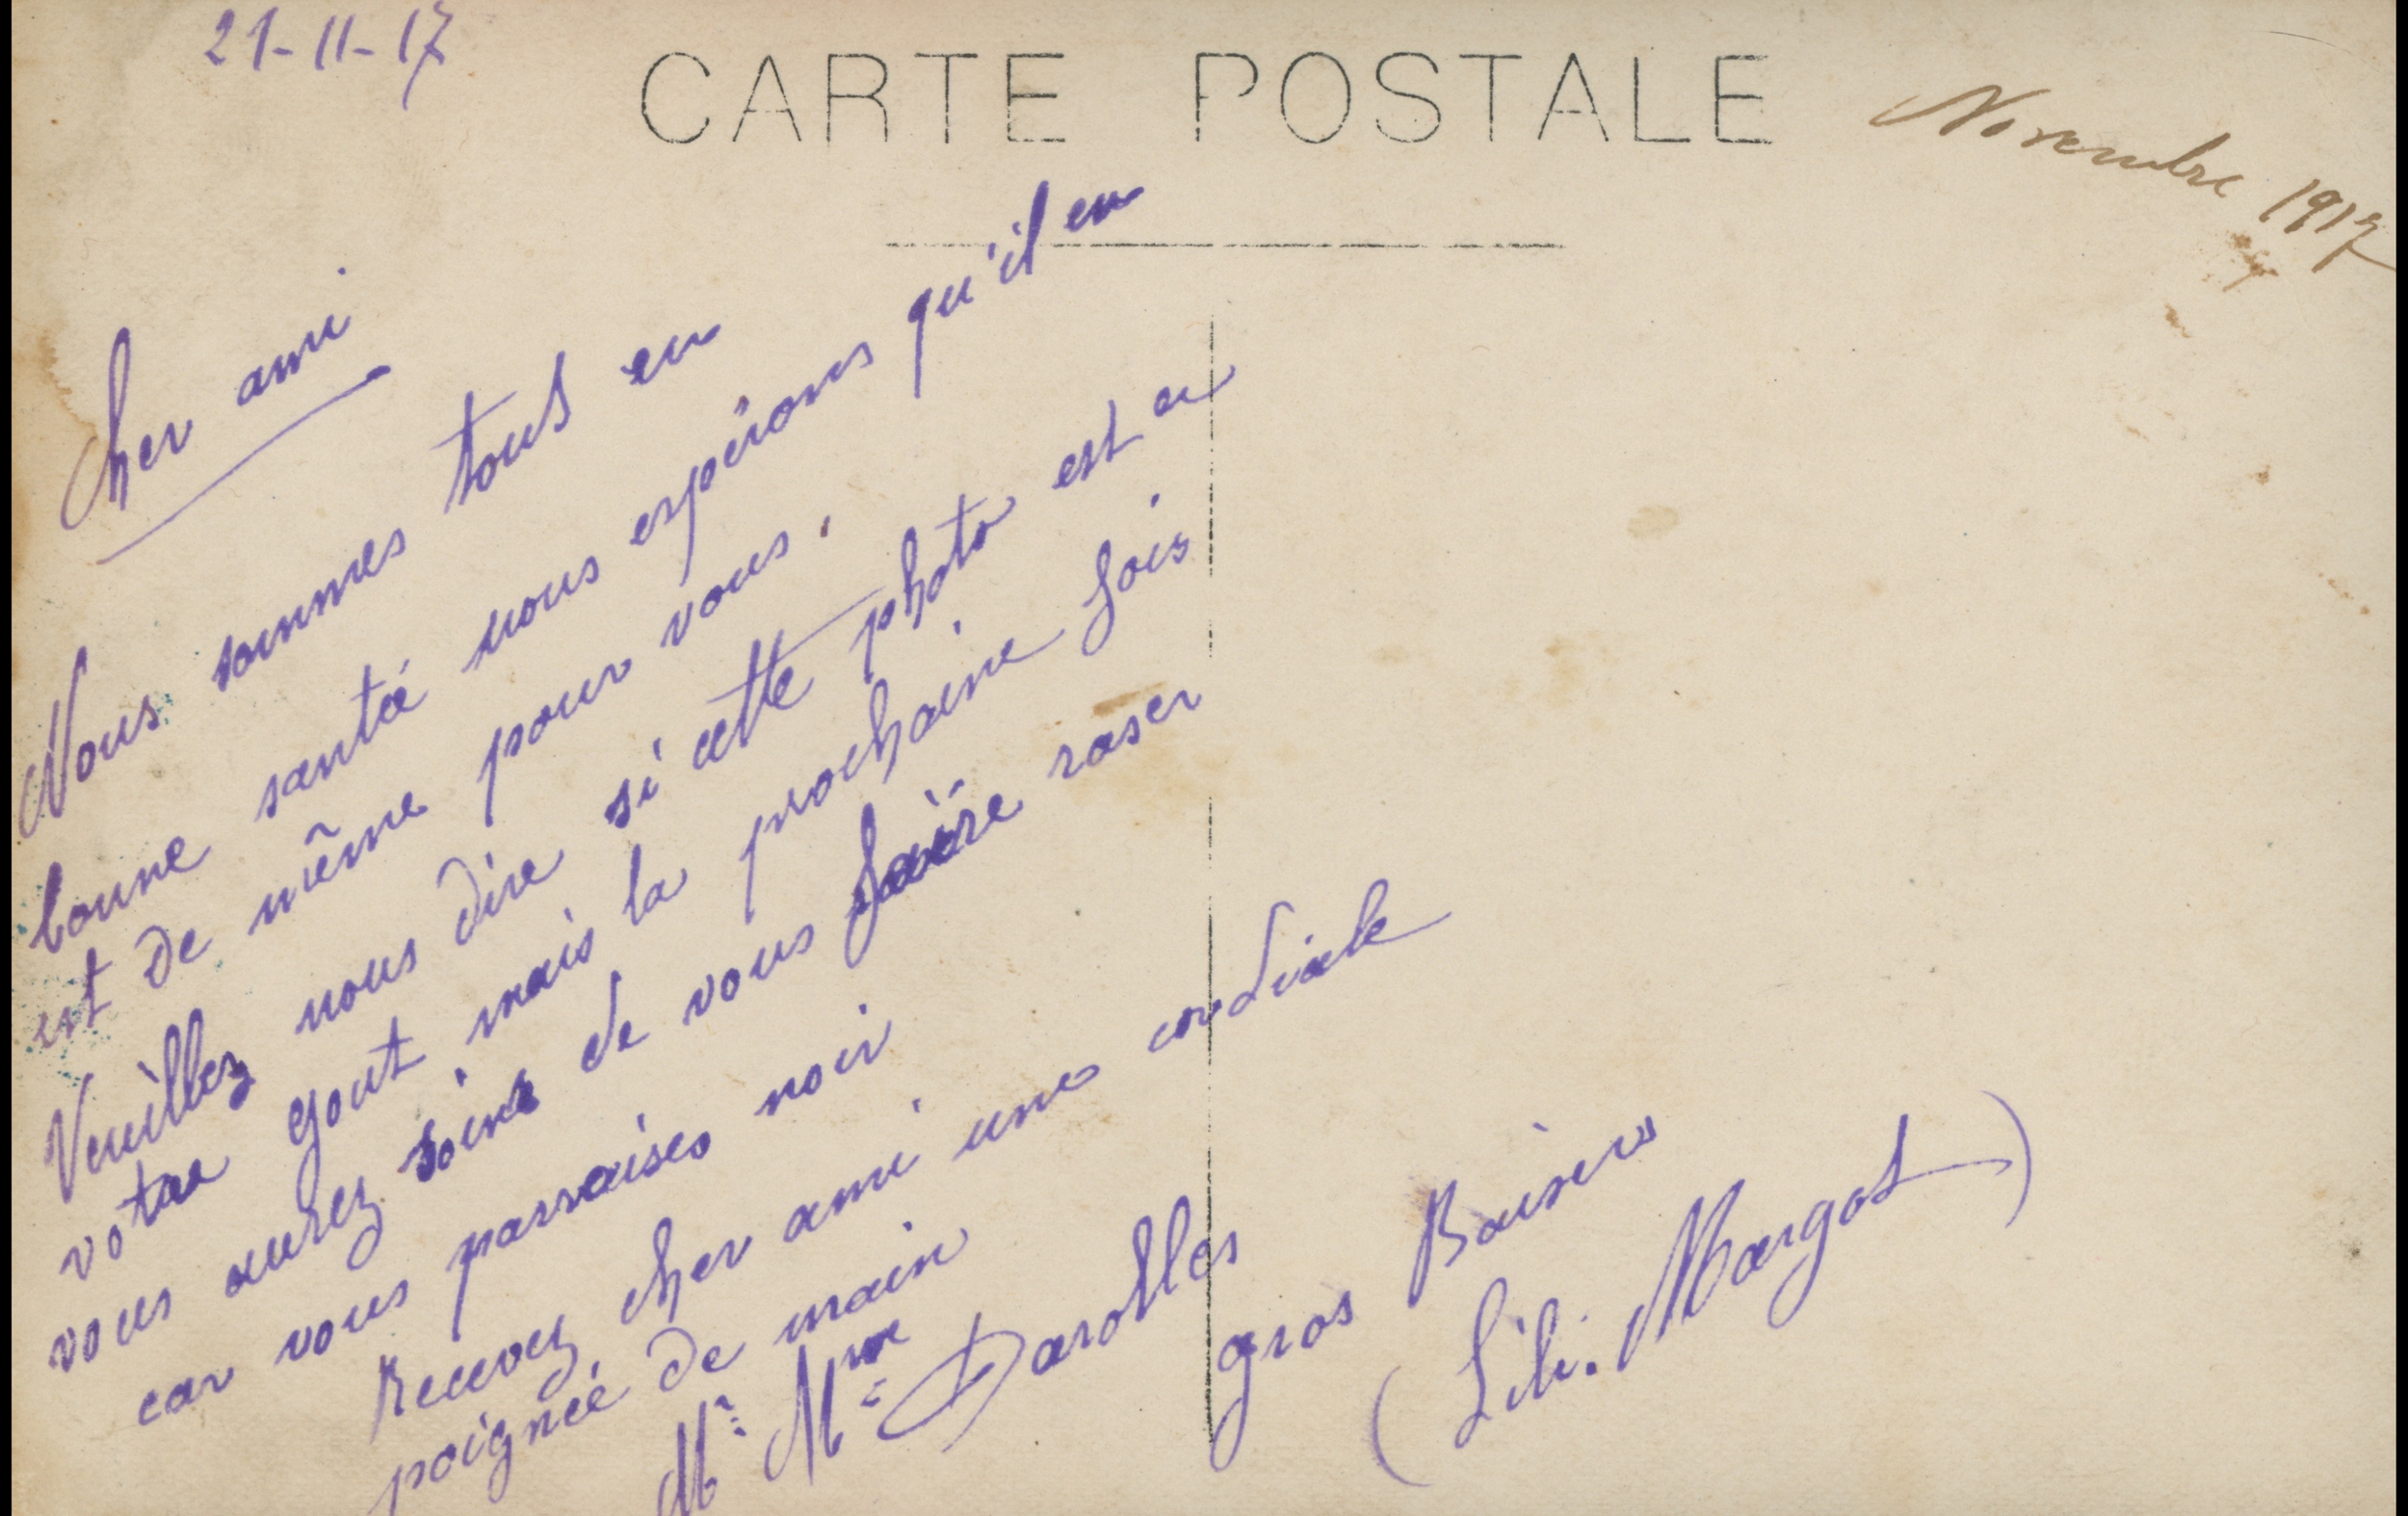 21-11-17
CARTE POSTALE
Novembre 1917
Cher ami
Nous sommes tous en
bonne santé nous espérons qu'il en
est de même pour vous.
Veuillez nous dire si cette photo est a
votre gout, mais la prochaine fois
vous aurez soins de vous faire raser
car vous parraises noir
Recevez cher ami une cordiale
poignée de main
Mr Mme Darolles
gros Baisers
(Lili. Margot)